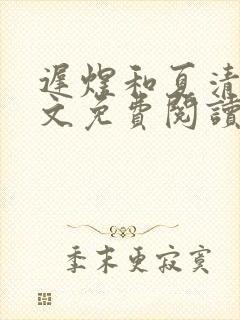 遲煌和夏清
文免費閱讀
季末更寂寞